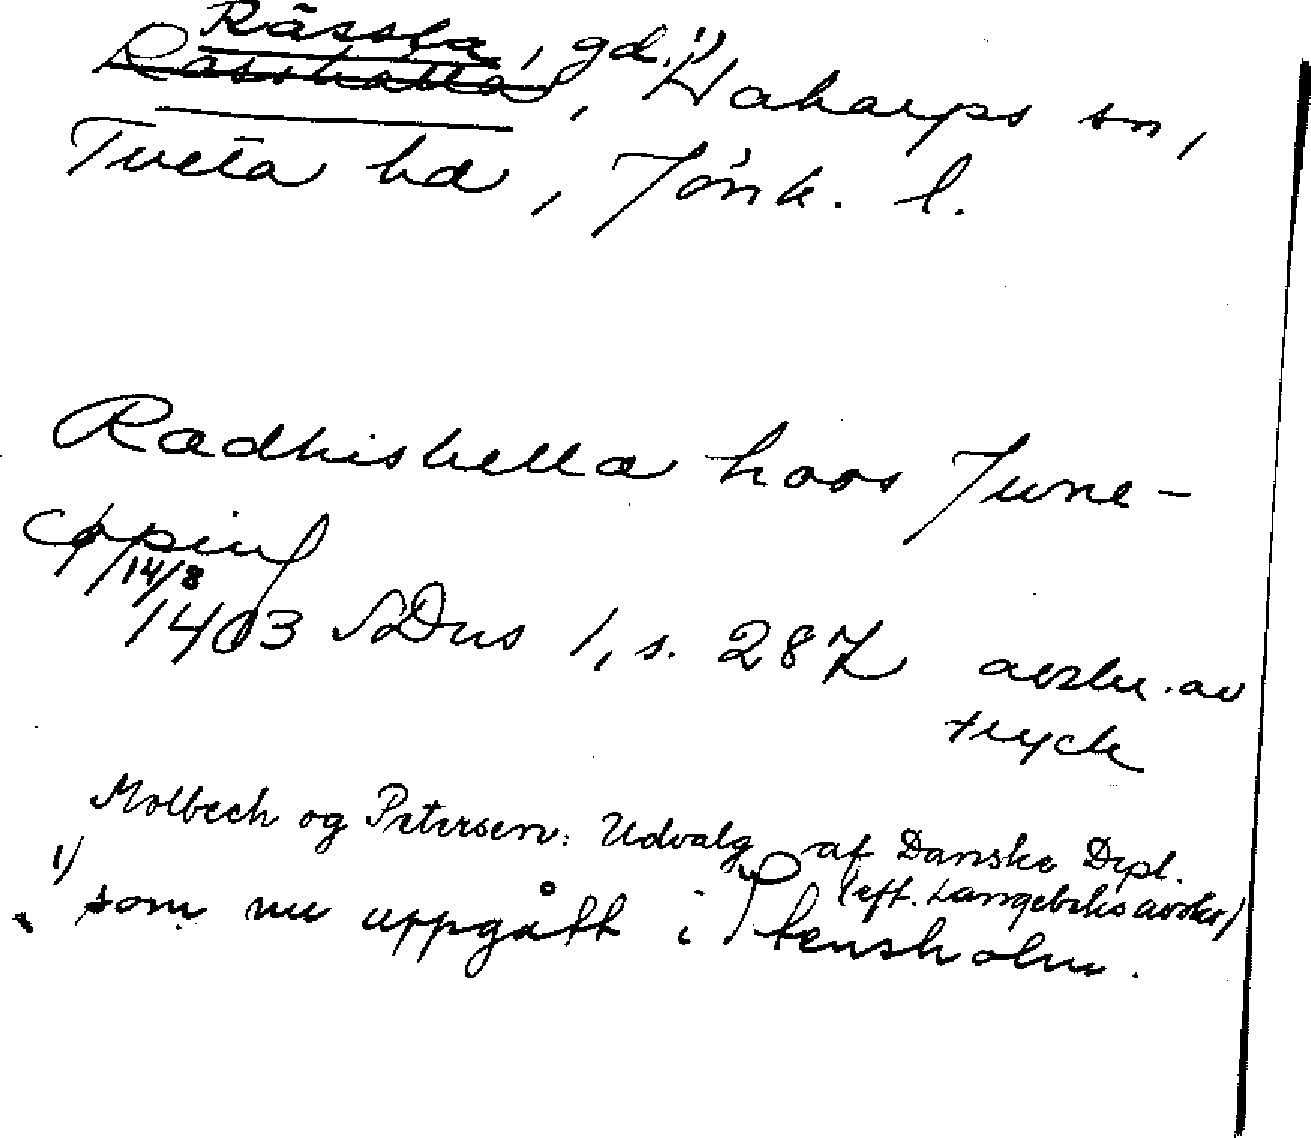 Rässla, gd.¹⁾
Rässhälla, Hakarps sn,
Tveta hd, Jönk. l.
Radhishella hoos June-
cøping
14/8
1403 SDns 1, s. 287 avskr. av
tryck
Molbech og Petersen: Udvalg af Danske Dipl.
(eft. Langebeks avskr)
1) som nu uppgått i Stensholm.